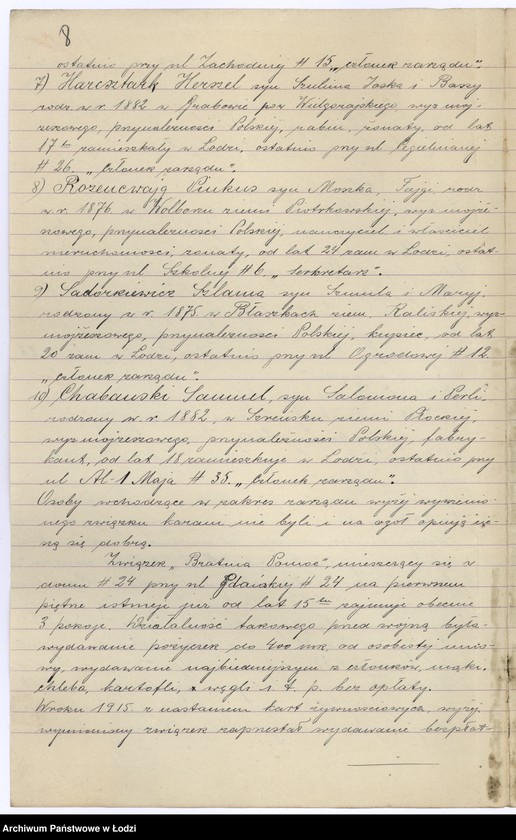 8
ostatnio przy ul Zachodniej # 15 „członek zarządu".
7) Harcsztark Herszel syn Szulima Joska i Bassy
rodz. w r. 1882 w Krabowie pow Wielgorajskiego, wyz moj-
żeszowego, przynależności Polskiej, rabin, żonaty, od lat
17tu zamieszkały w Lodzi, ostatnio przy ul. Cegielnianej
# 26. „członek zarządu".
8) Rozencwajg Pinkus syn Moszka, Fajgi, rodz
w r. 1876 w Wolborzu ziemi Piotrkowskiej, wyz mojże-
szowego, przynależności Polskiej, nauczyciel i właściciel
nieruchomości, żonaty, od lat 24 zam w Lodzi, ostat-
nio przy ul Szkolnej # 6 „sekretarz".
9) Sadokiewicz Szlama syn Szmula i Maryj
urodzony w r. 1875 w Błaszkach ziem. Kaliskiej, wyz-
mojżeszowego, przynależności Polskiej, kupiec, od lat
20 zam w Lodzi, ostatnio przy ul Ogrodowej # 12.
„członek zarządu".
10) Chabański Samuel, syn Salomona i Perli,
urodzony w r. 1882, w Szreńsku ziemi Płockiej,
wyz mojżeszowego, przynależności Polskiej, fabry-
kant, od lat 18 zamieszkuje w Lodzi, ostatnio przy
ul Al-1 Maja # 38. „członek zarządu".
Osoby wchodzące w zakres zarządu wyżej wymienio-
nego związku karani nie byli i na ogół opinją cie-
szą się dobrą.
Związek „Bratnia Pomoc", mieszczący się w
domu # 24 przy ul Gdańskiej # 24 na pierwszem
piętrze istnieje już od lat 15tu zajmuje obecnie
3 pokoje. Działalność takowego przed wojną była
wydawanie pożyczek do 400 mk. od osobistej umo-
wy, wydawanie najbiedniejszym z członków, mąki,
chleba, kartofli, węgli i t. p. bez opłaty.
W roku 1915 z nastaniem kart żywnościowych, wyżej
wymieniony związek zaprzestał wydawanie bezpłat-
Archiwum Państwowe w Łodzi